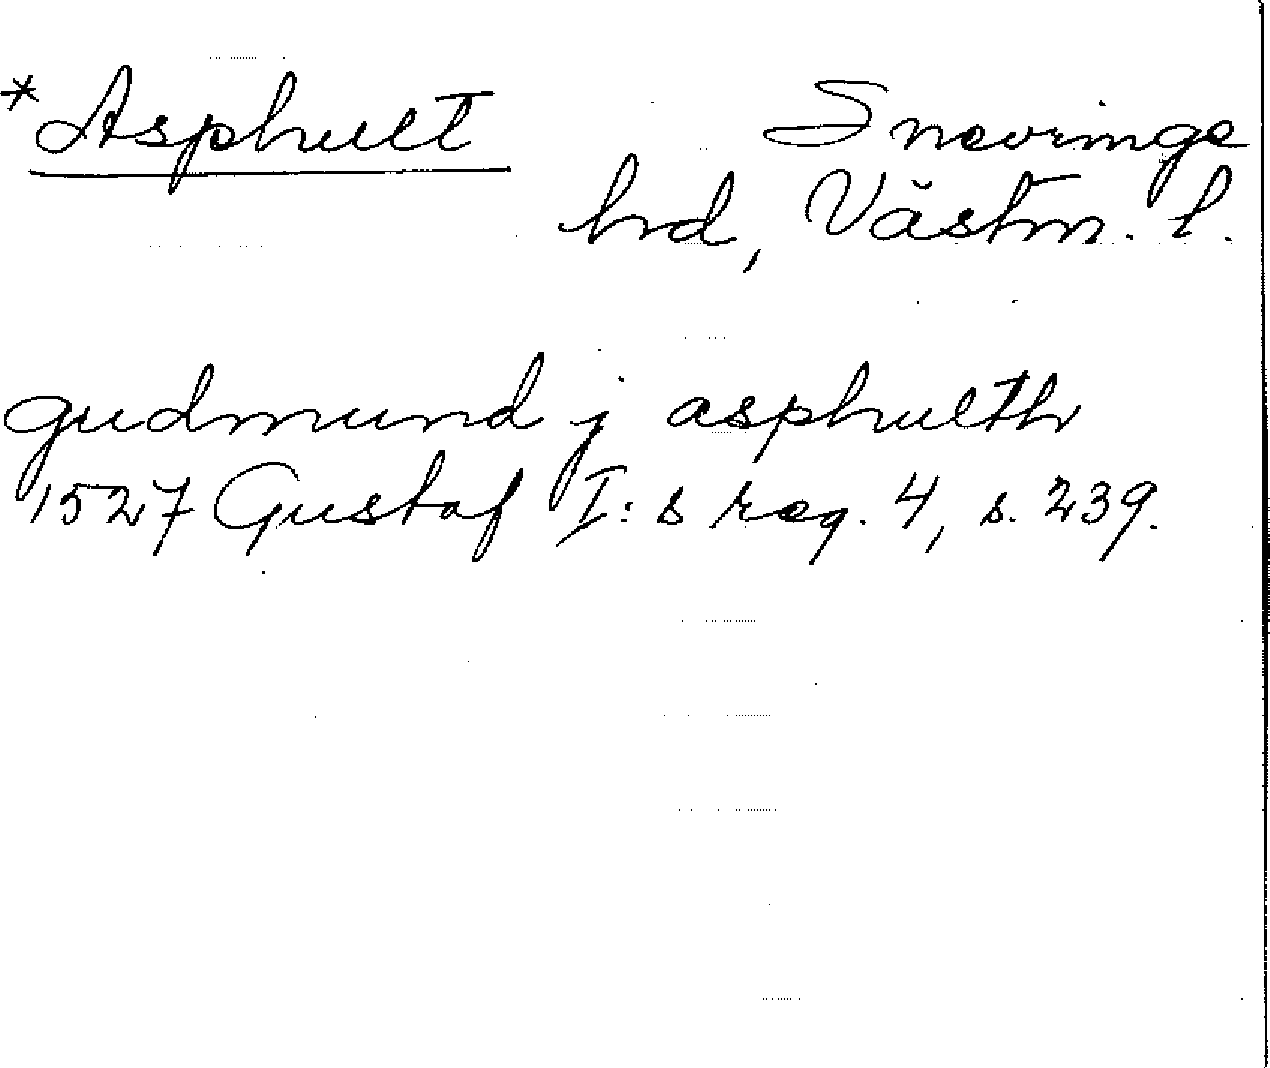 *Asphult Snevringe
hrd, Västm. l.
gudmund j asphulth
1527 Gustaf I:s reg. 4, s. 239.